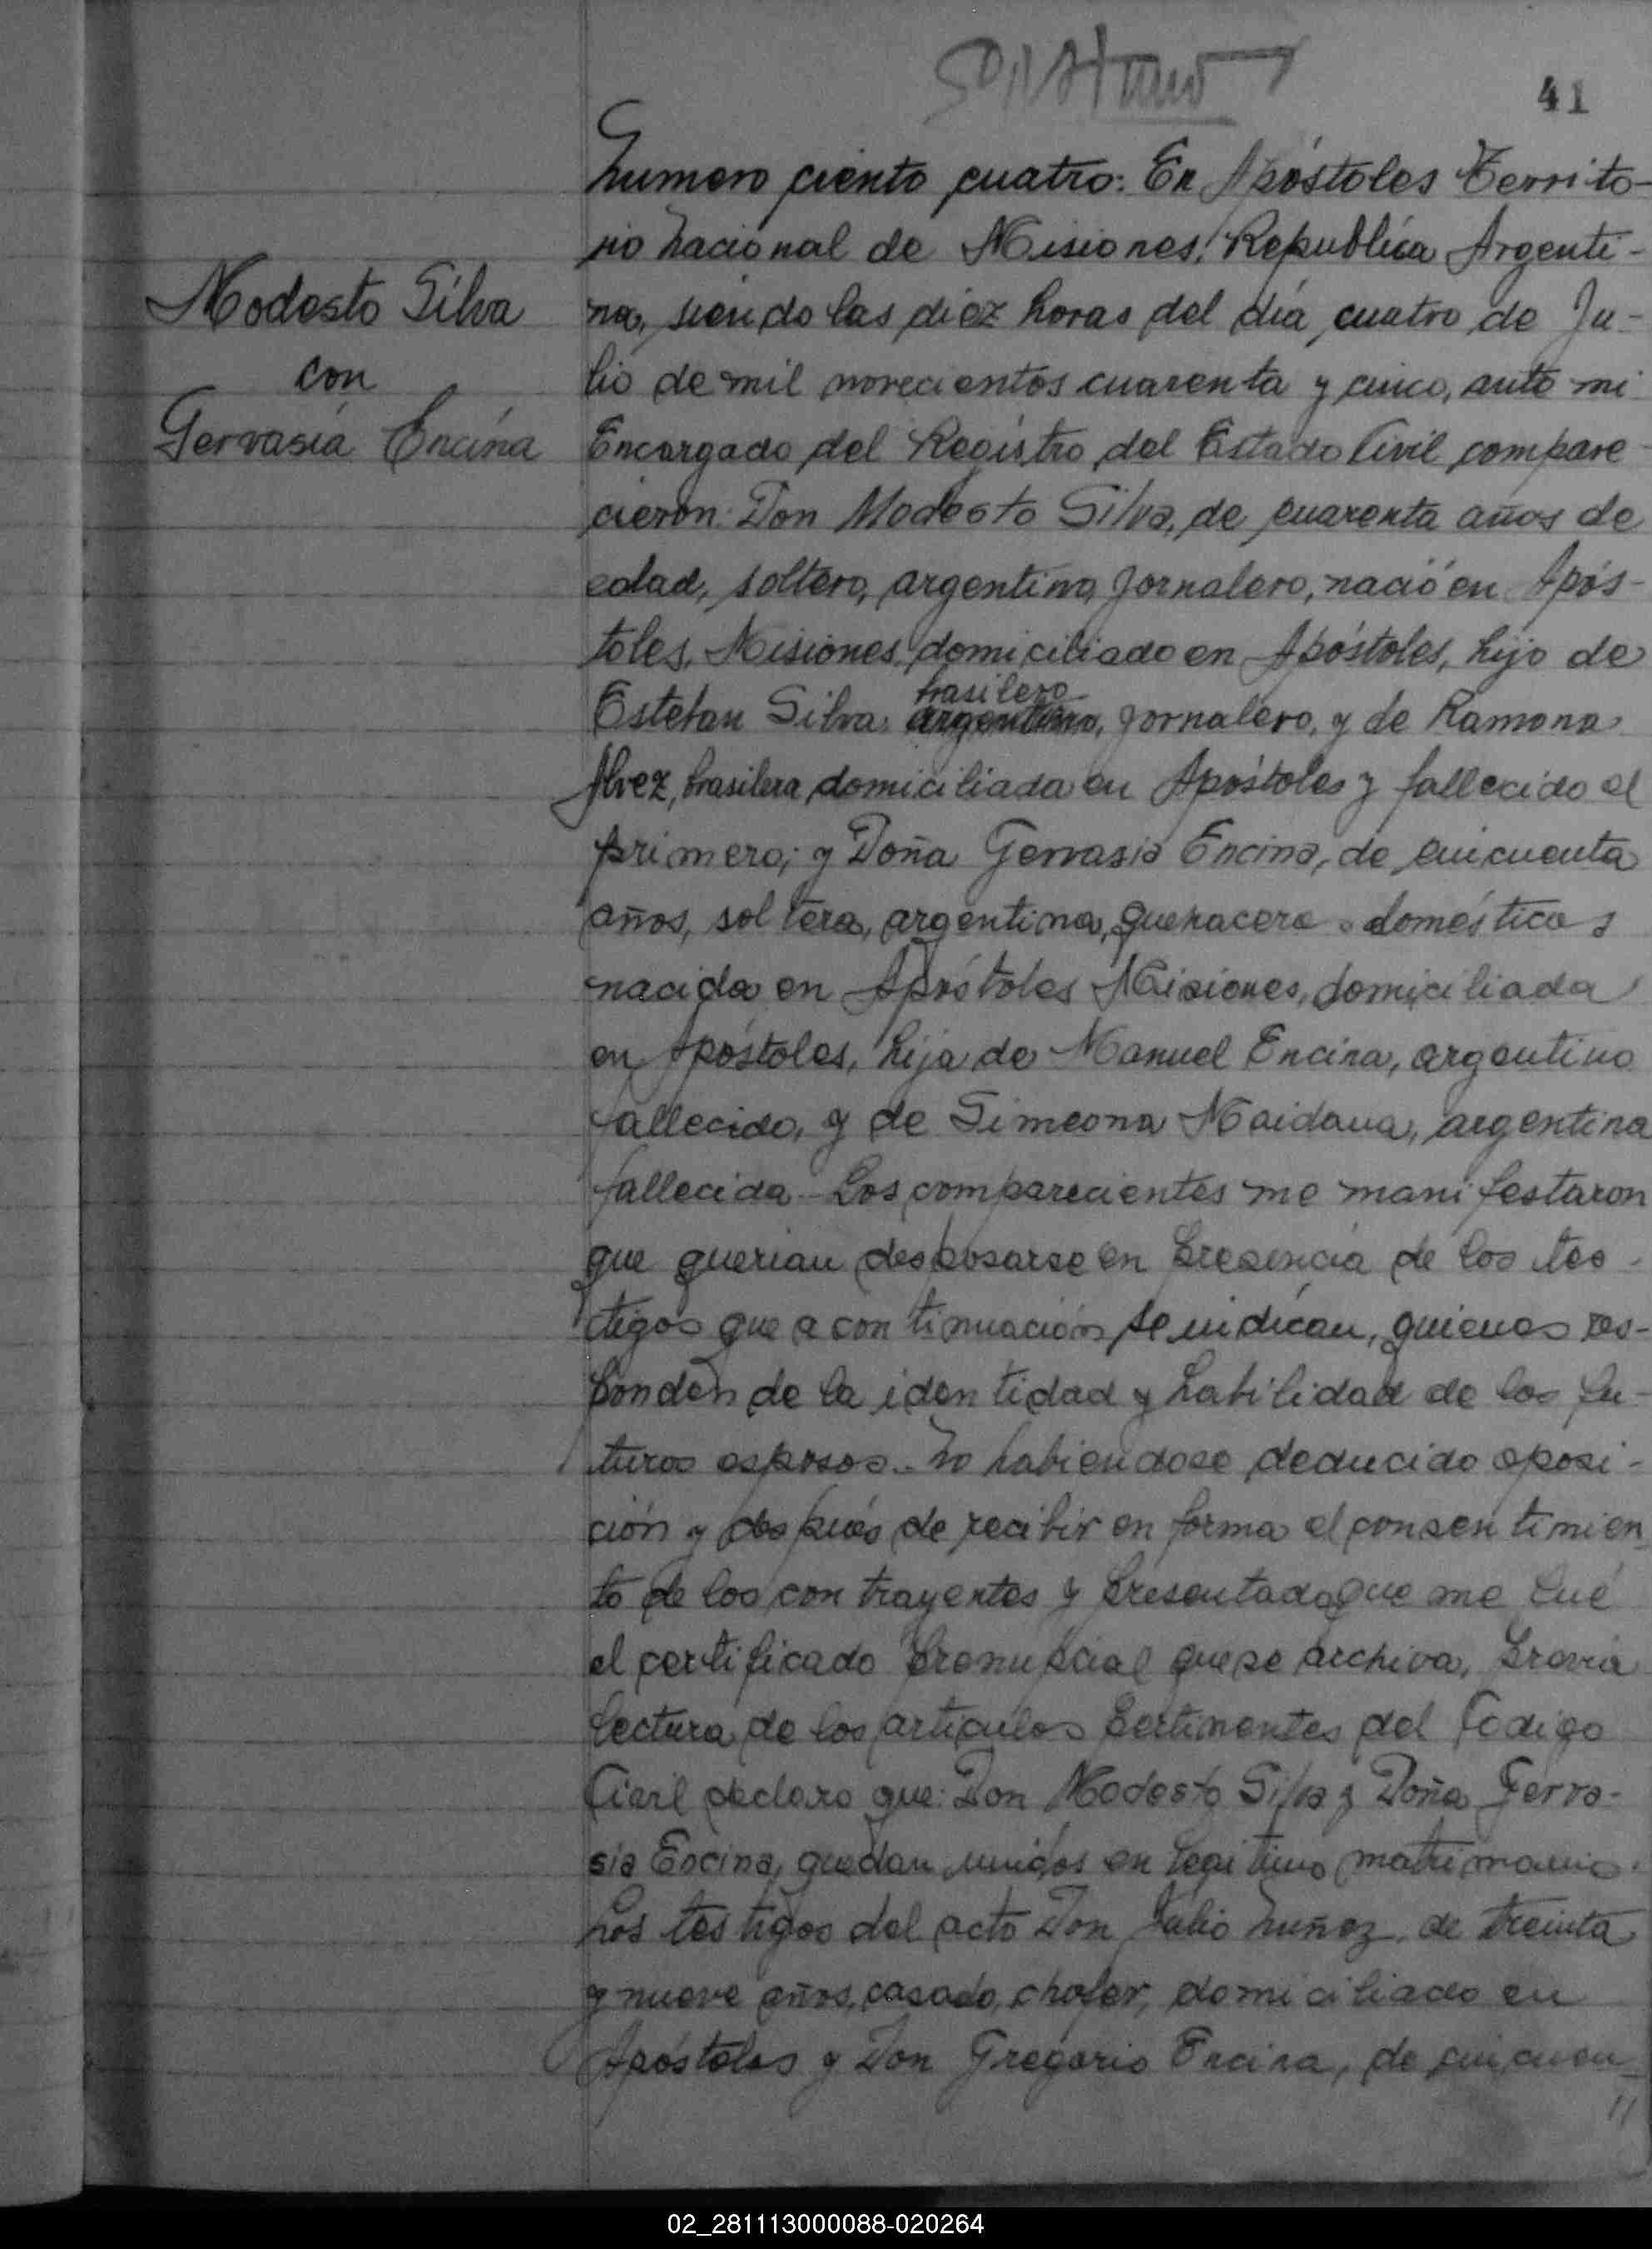 41
Numero ciento cuatro: En Apóstoles Territo-
rio Nacional de Misiones, Republica Argenti-
na, siendo las diez horas del día cuatro de Ju-
lio de mil novecientos cuarenta y cinco, ante mi
Encargado del Registro del Estado Civil compare-
cieron: Don Modesto Silva, de cuarenta años de
edad, soltero, argentino, Jornalero, nació en Após-
toles, Misiones, domiciliado en Apóstoles, hijo de
brasilero
Esteban Silva, argentino, Jornalero, y de Ramona
Alvez, brasilera, domiciliada en Apóstoles y fallecido el
primero; y Doña Gervasia Encina, de cincuenta
años, soltera, argentina, quehaceres domésticos
nacida en Apóstoles Misiones, domiciliada
en Apóstoles, hija de Manuel Encina, argentino
fallecido, y de Simeona Maidana, argentina
fallecida - Los comparecientes me manifestaron
que querian desposarse en presencia de los tes-
tigos que a continuación se indican, quienes res-
ponden de la identidad y habilidad de los fu-
turos esposos.- No habiendose deducido oposi-
ción y después de recibir en forma el consentimien
to de los contrayentes y presentado que me fué
el certificado prenupcial que se archiva, previa
lectura de los articulos pertinentes del Codigo
Civil declaro que: Don Modesto Silva y Doña Gerva-
sia Encina, quedan unidos en legitimo matrimonio.
Los testigos del acto Don Julio Nuñez, de treinta
y nueve años, casado, chofer, domiciliado en
Apóstoles y Don Gregorio Encina, de cincuen-
"
Modesto Silva
con
Gervasia Encina
02_281113000088-020264